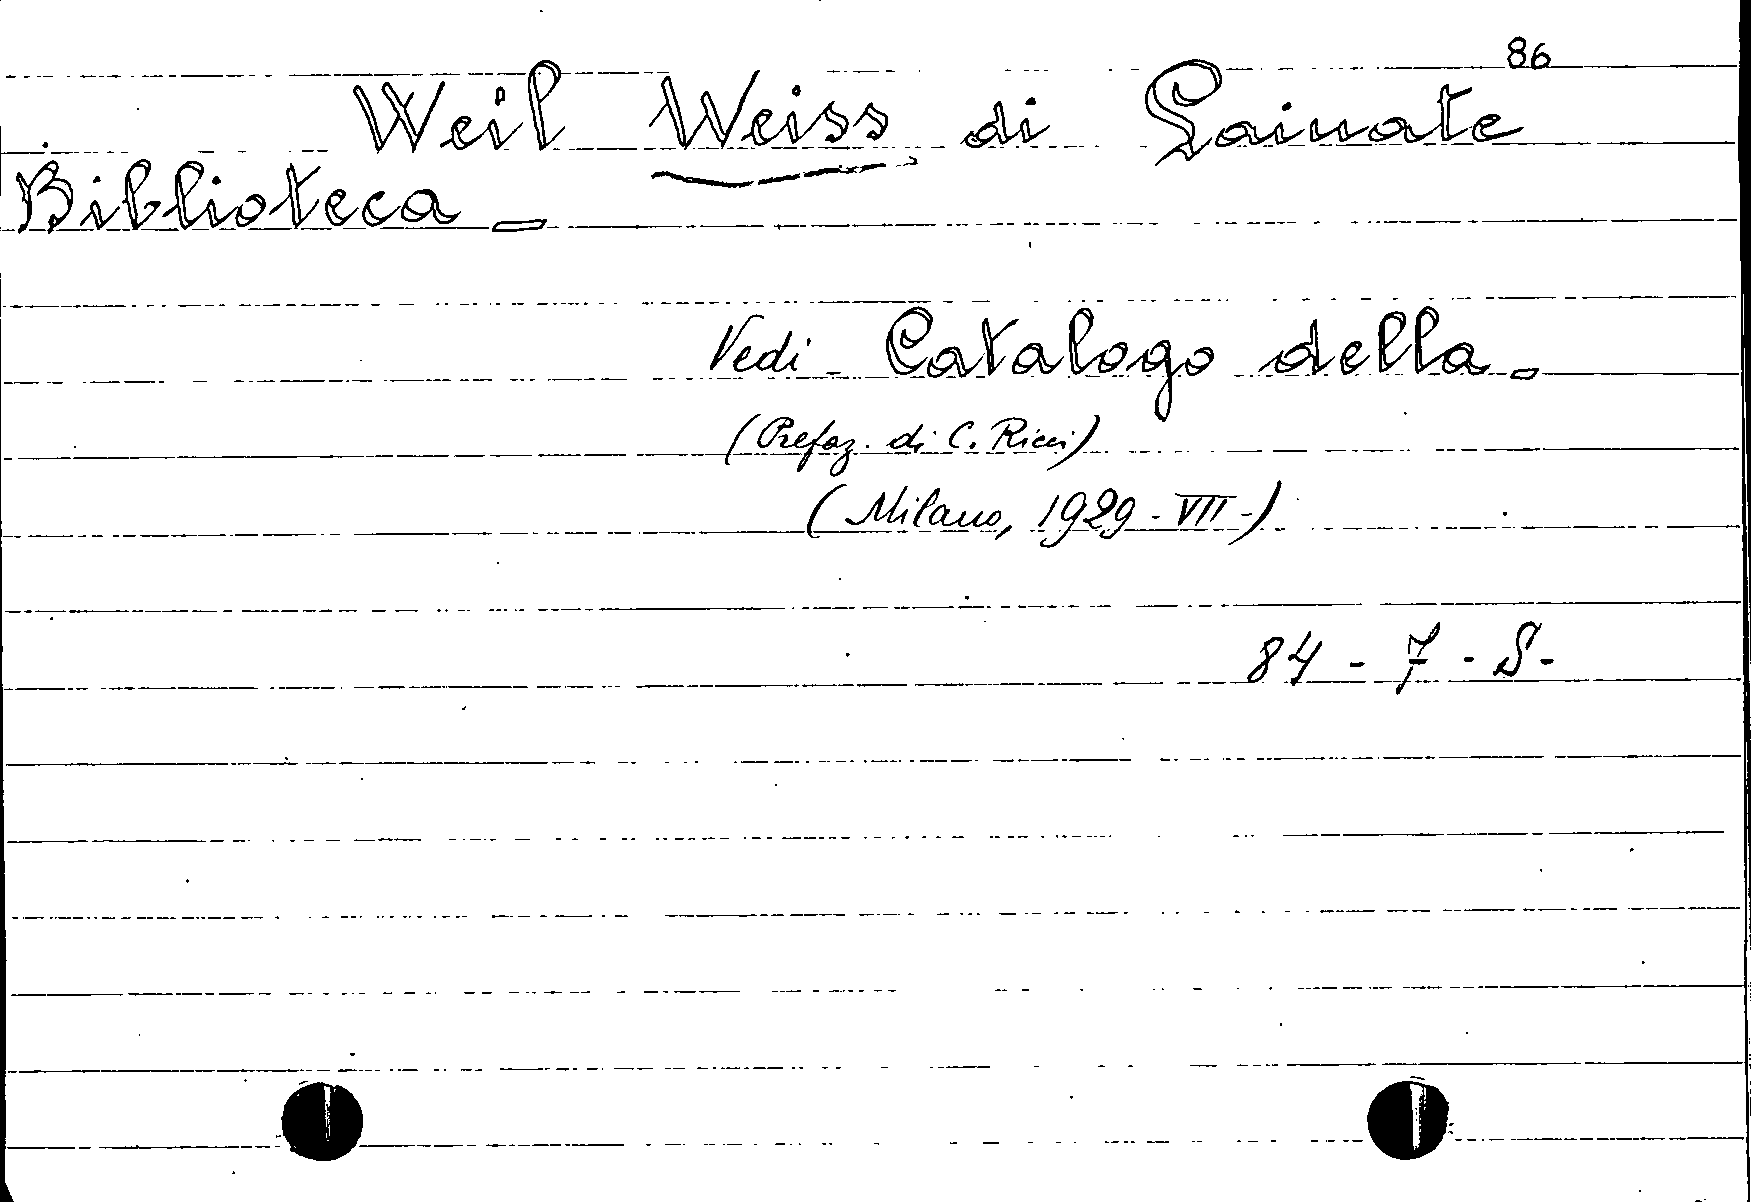 86
Weil Weiss di Lainate
Biblioteca -
Vedi Catalogo della -
(Prefaz. di C. Ricci)
(Milano, 1929 - VII -)
84 - 7 - S -